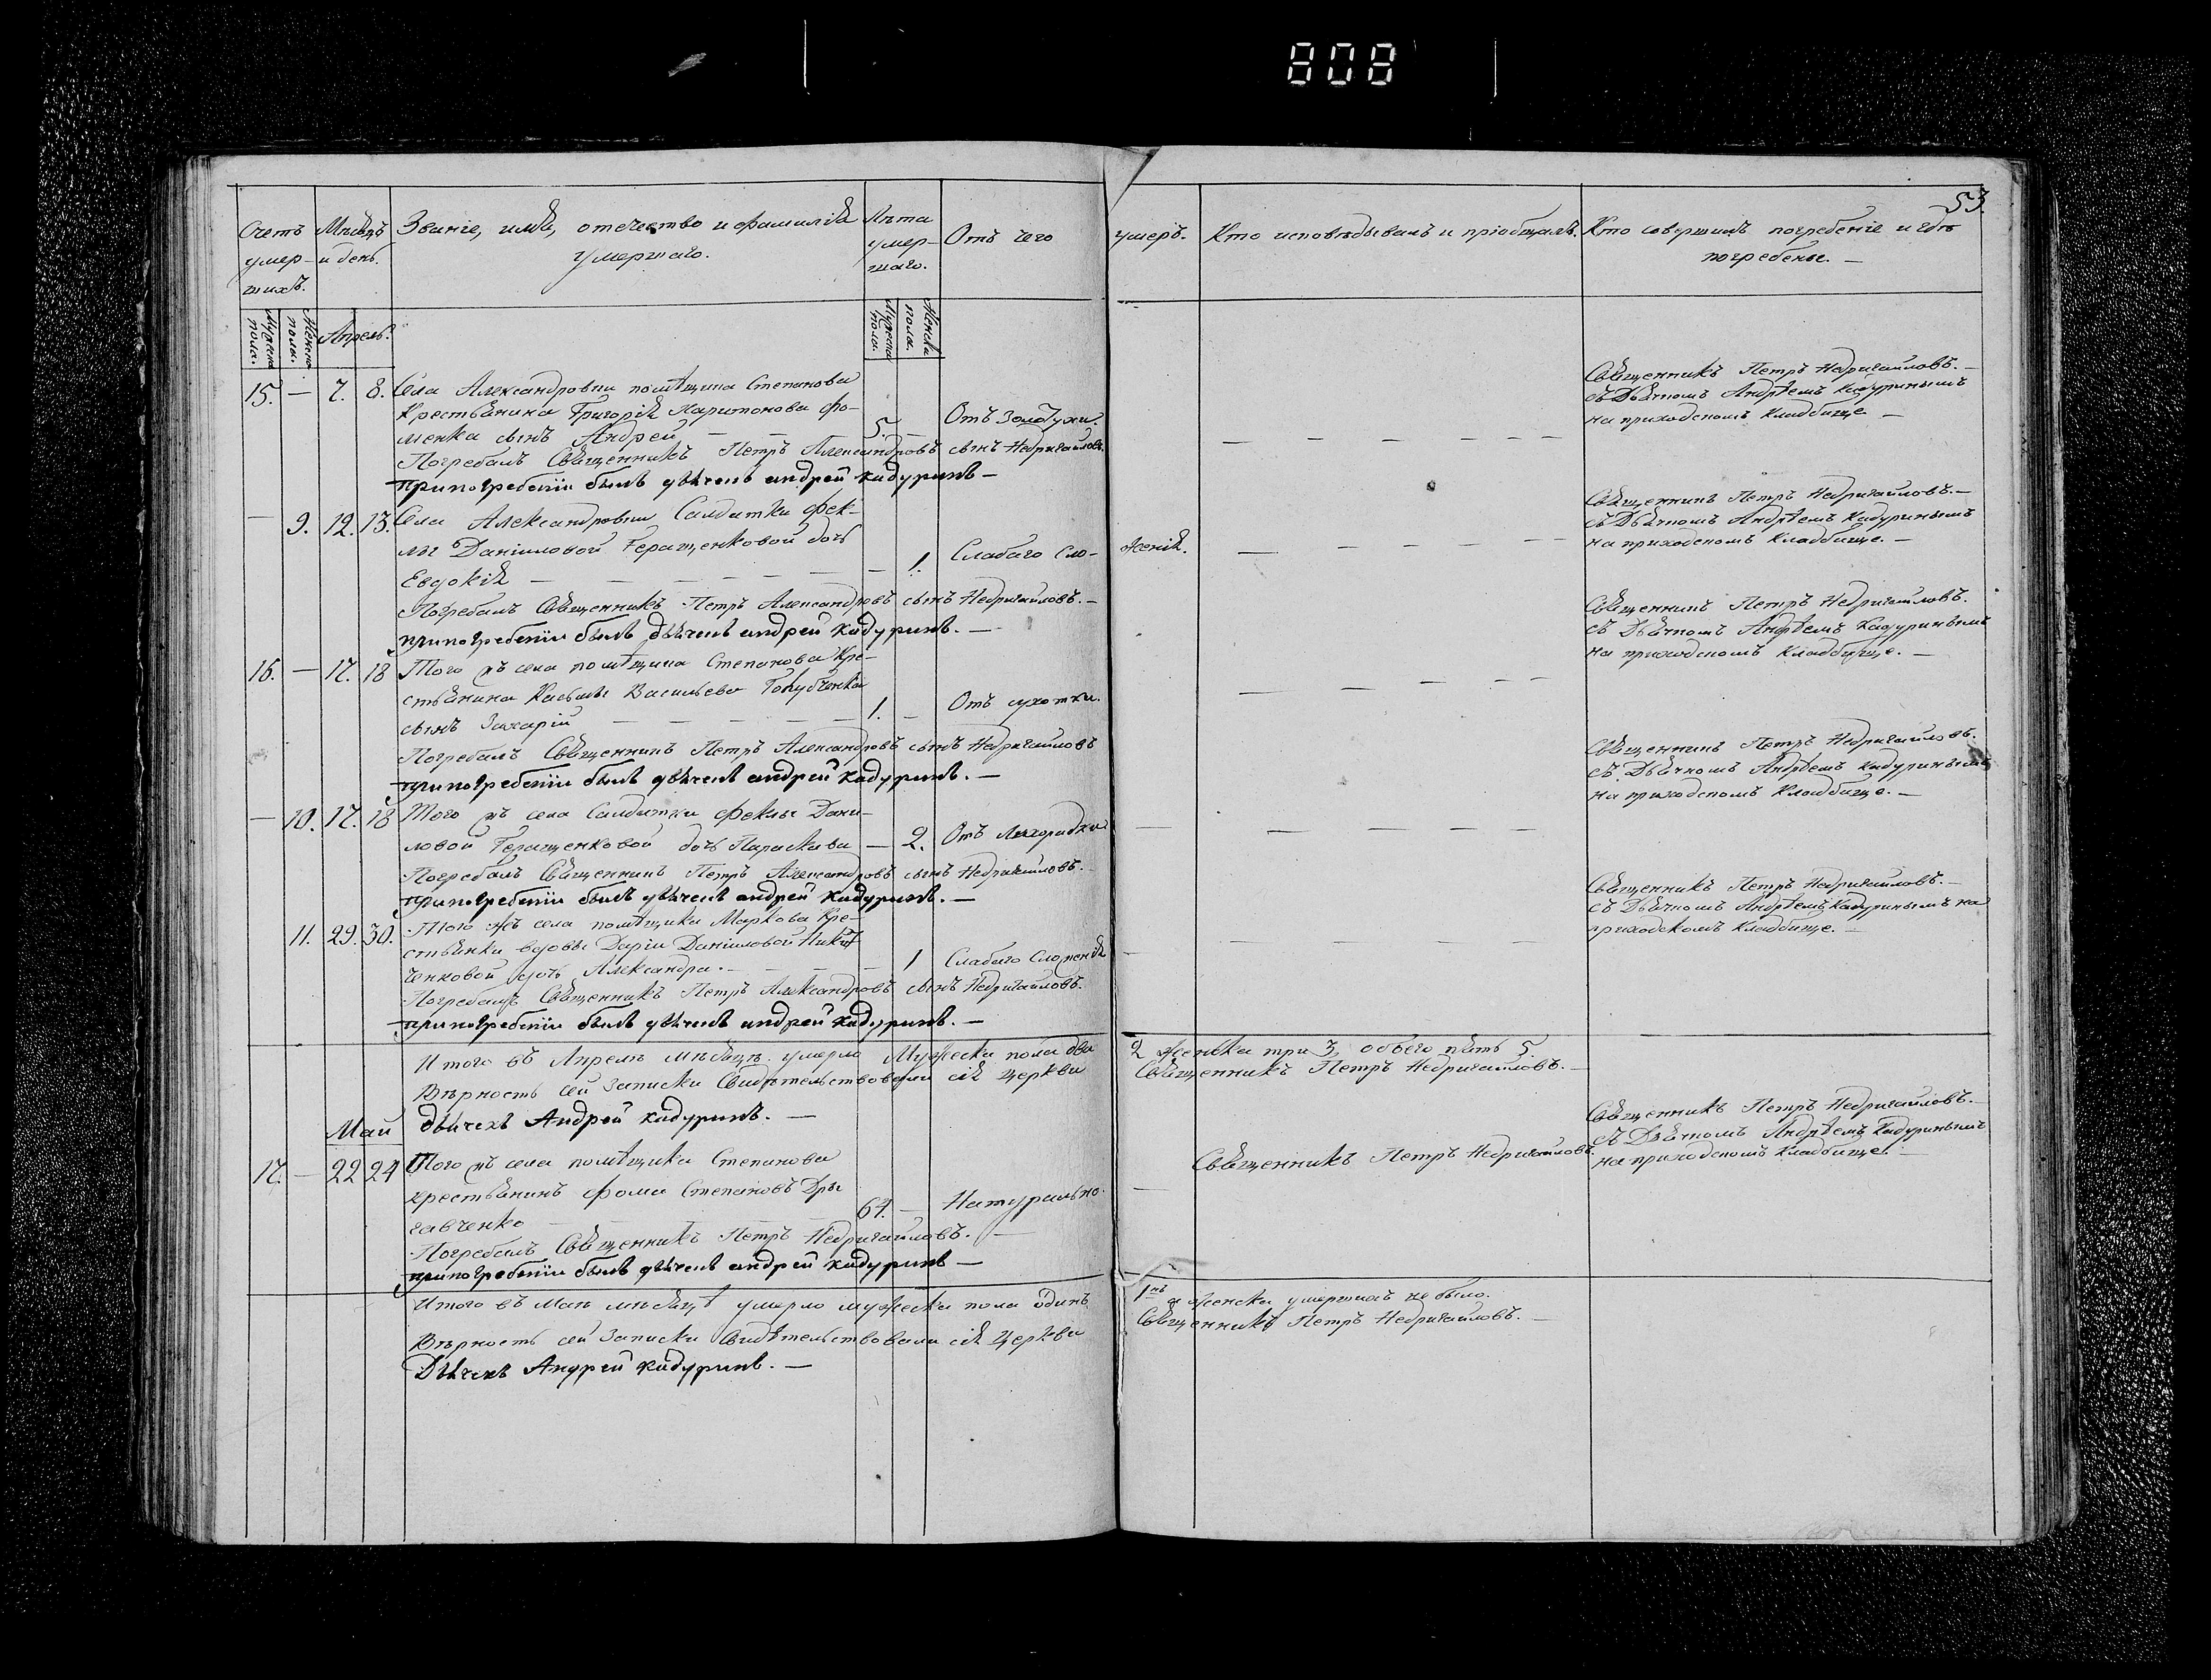 808
53.
Счетъ умер-шихъ.
Мѣсяцъ и день.
Званіе, имя, отечество и фамилія умершаго.
Лѣта умер-шаго.
Отъ чего
умеръ.
Кто исповѣдывалъ и пріобщалъ.
Кто совершалъ погребеніе и гдѣ погребены. —
Мужеска пола.
Женска пола.
Апрель.
Мужеска пола.
Женска пола.
15. — 7. 8. Села Александровки помѣщика Степанова
крестьянина Григорія Харитонова Фо-
менка сынъ Андрей — — 5. — Отъ Золотухи.
Погребалъ Священникъ Петръ Александровъ сынъ Недригайловъ.
при погребеніи былъ дьячекъ андрей кадуринъ —
Священникъ Петръ Недригайловъ. —
съ Дьячкомъ Андреемъ Кадуринымъ
на приходскомъ кладбище —
— 9. 12. 13. Села Александровки Салдатки Фек-
лы Даніиловой Геращенковой дочь
Евдокія — — — — — — 1. Слабаго Сло-
женія.
Погребалъ Священникъ Петръ Александровъ сынъ Недригайловъ. —
при погребеніи былъ дьячекъ андрей кадуринъ. —
Священникъ Петръ Недригайловъ. —
съ Дьячкомъ Андреемъ Кадуринымъ
на приходскомъ кладбище. —
16. — 17. 18 Того жъ села помѣщика Степанова Кре-
стьянина Касьяна Васильева Голубченка
сынъ Захарій — — — — — 1. — Отъ сухотки.
Погребалъ Священникъ Петръ Александровъ сынъ Недригайловъ
при погребеніи былъ дьячекъ андрей кадуринъ. —
Священникъ Петръ Недригайловъ.
съ Дьячкомъ Андреемъ Кадуринымъ
на приходскомъ кладбище. —
— 10. 17. 18 Того жъ села Салдатки Феклы Дани-
ловой Геращенковой дочь Параскева — 2. Отъ Лихорадки
Погребалъ Священникъ Петръ Александровъ сынъ Недригайловъ.
при погребеніи былъ дьячекъ андрей кадуринъ. —
Священникъ Петръ Недригайловъ.
съ Дьячкомъ Андреемъ Кадуринымъ
на приходскомъ кладбище. —
11. 29. 30. Того жъ села помѣщика Маркова Кре-
стьянки вдовы Даріи Даніиловой Никит-
ченковой дочь Александра. — — — 1 Слабаго Сложенія —
Погребалъ Священникъ Петръ Александровъ сынъ Недригайловъ.
при погребеніи былъ дьячекъ андрей кадуринъ. —
Священникъ Петръ Недригайловъ. —
съ Дьячкомъ Андреемъ Кадуринымъ на
приходскомъ кладбище. —
Итого въ Апрелѣ мѣсяцѣ умерло Мужеска пола два
2 женска три 3, обоего пять 5.
Вѣрность сей Записки Свидѣтельствовали сія Церкви
Священникъ Петръ Недригайловъ. —
дьячекъ Андрей кадуринъ. —
Май
17. — 22 24 Того жъ села помѣщика Степанова
крестьянинъ Фома Степановъ Дры
гавченко — — — 64. — Натурально. —
Священникъ Петръ Недригайловъ.
Погребалъ Священникъ Петръ Недригайловъ. —
при погребеніи былъ дьячекъ андрей кадуринъ —
Священникъ Петръ Недригайловъ. —
съ Дьячкомъ Андреемъ Кадуринымъ
на приходскомъ кладбище. —
Итого въ Маѣ мѣсяцѣ умерло мужеска пола одинъ
1нъ а женска умершихъ не было.
Вѣрность сей Записки Свидѣтельствовали сія Церкви
Священникъ Петръ Недригайловъ. —
Дьячекъ Андрей кадуринъ. —